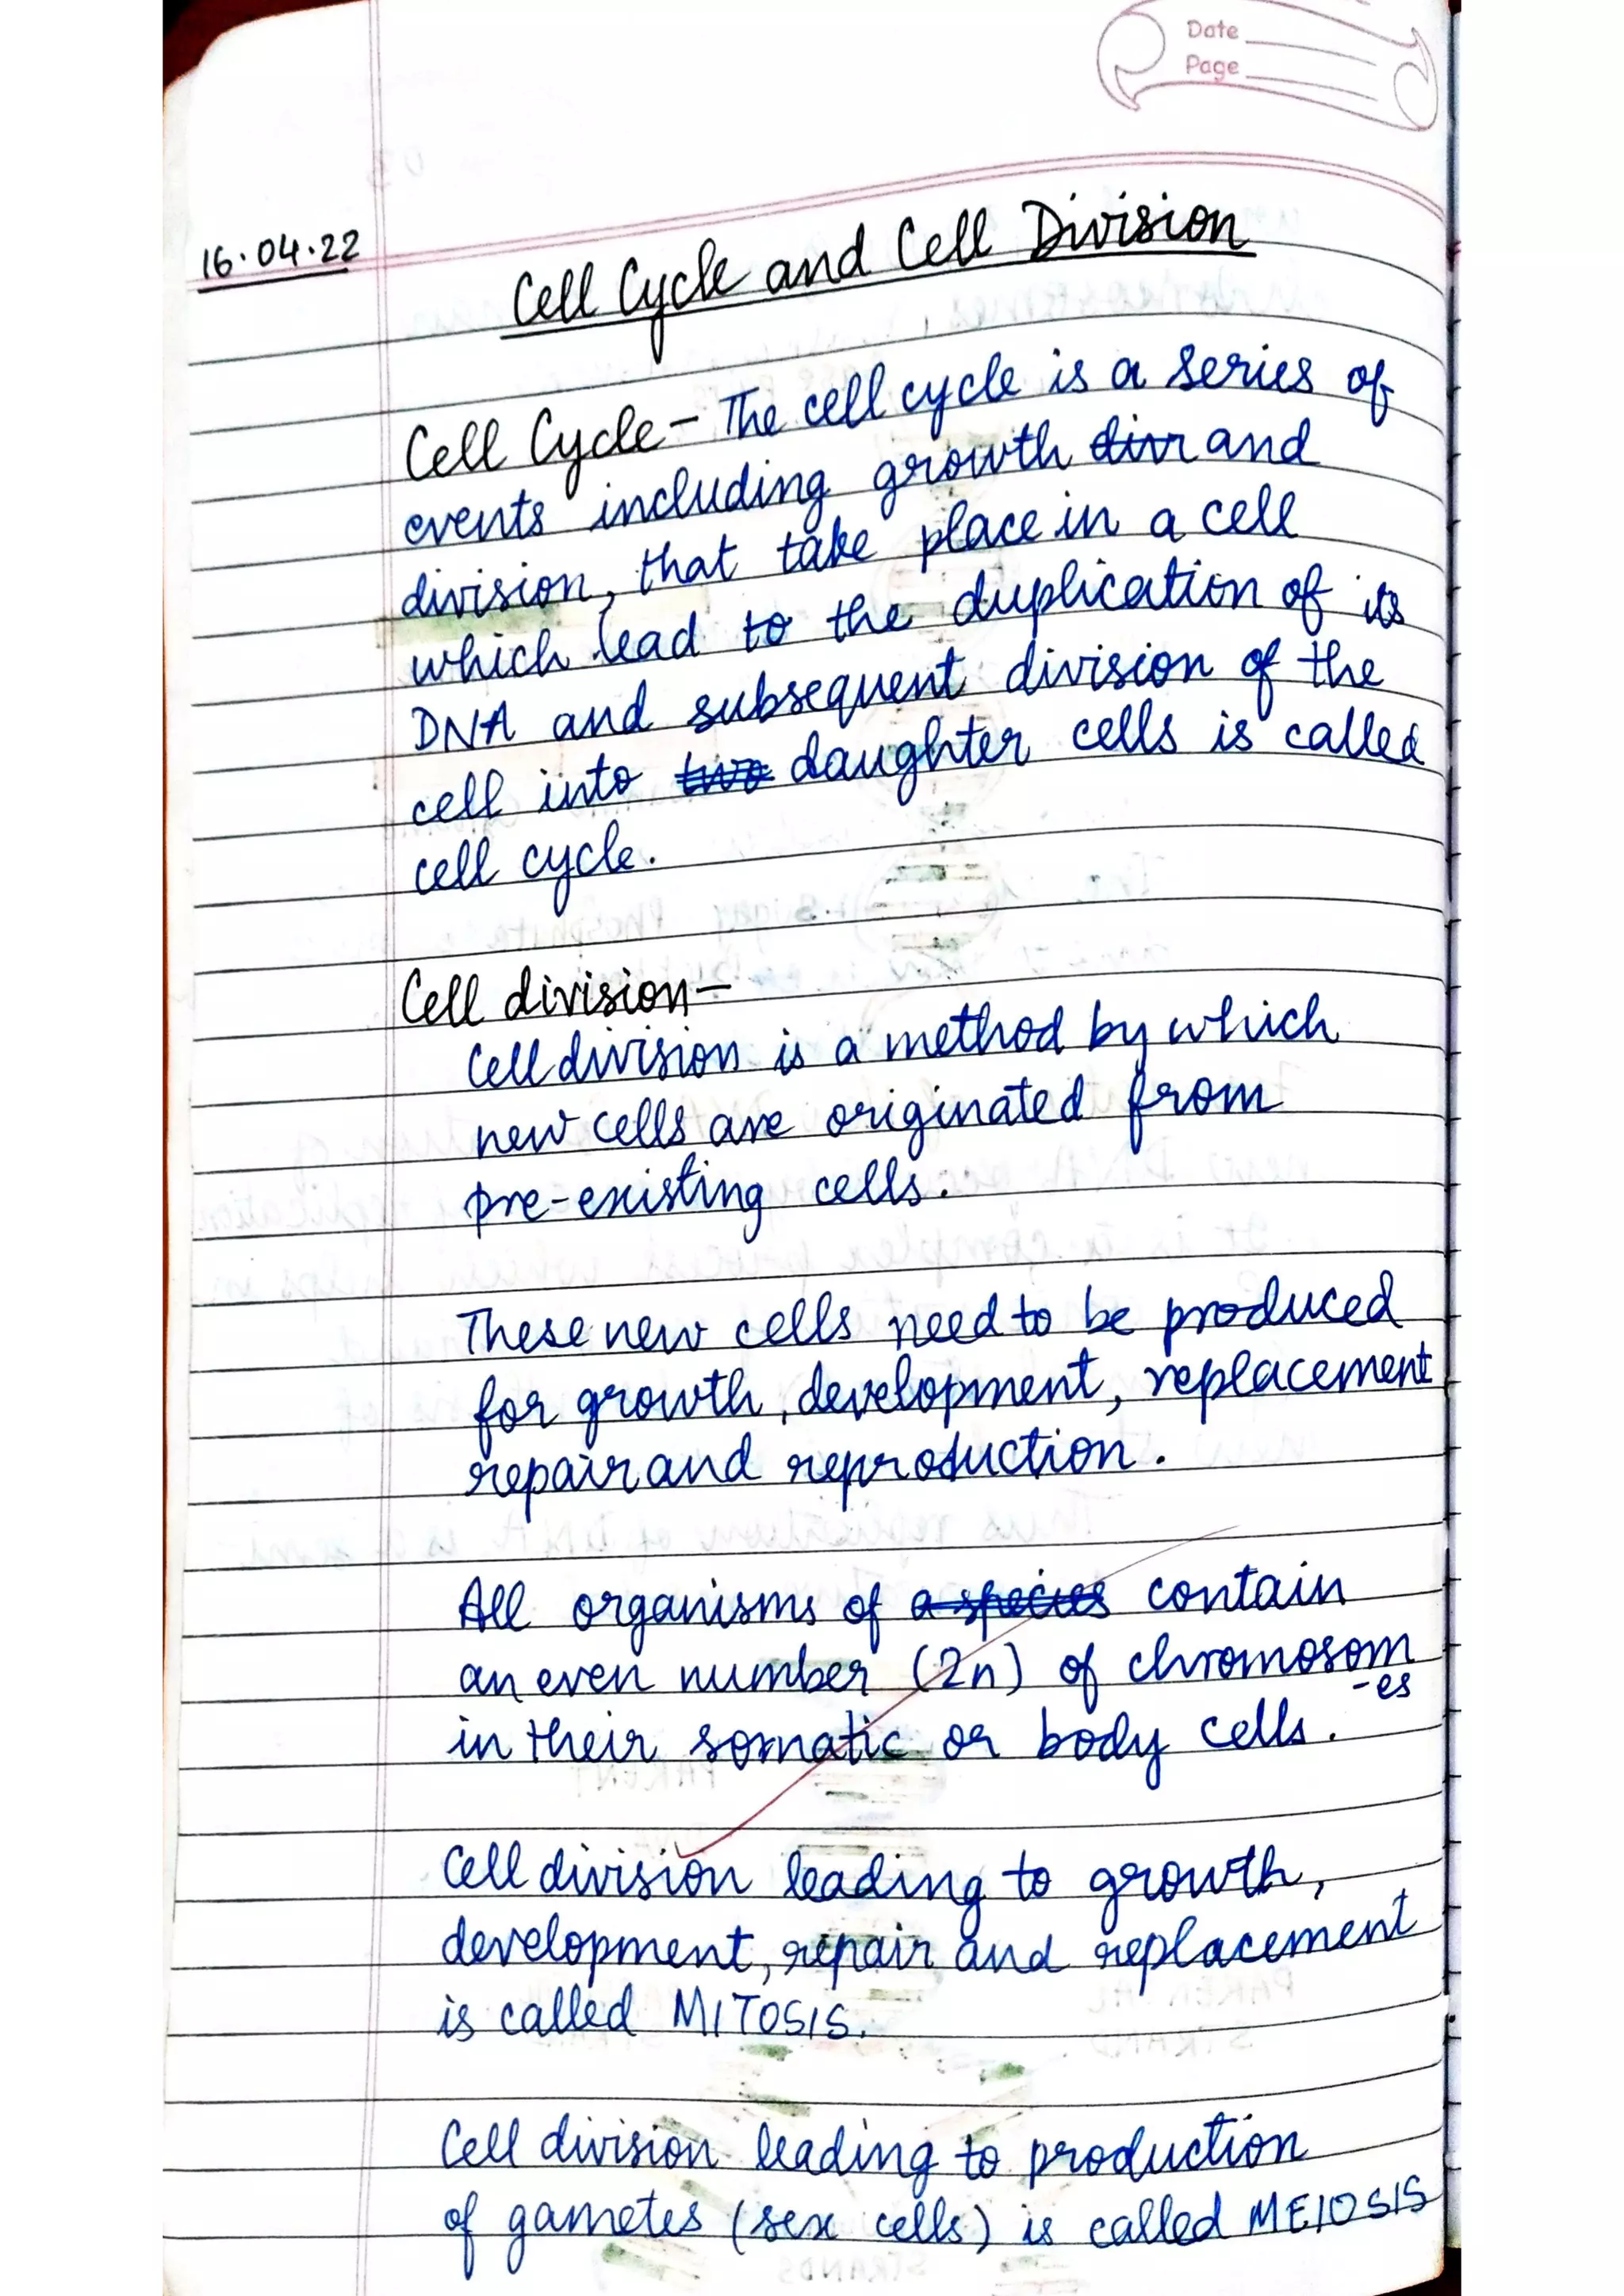 Date
Page
16.04.22
Cell Cycle and Cell Division
Cell Cycle - The cell cycle is a series of
events including growth and
division, that take place in a cell
which lead to the duplication of its
DNA and subsequent division of the
cell into two daughter cells is called
cell cycle.
Cell division -
Cell division is a method by which
new cells are originated from
pre-existing cells.
These new cells need to be produced
for growth, development, replacement
repair and reproduction.
All organisms of a species contain
an even number (2n) of chromosom
-es
in their somatic or body cells.
Cell division leading to growth,
development, repair and replacement
is called MITOSIS.
Cell division leading to production
of gametes (sex cells) is called MEIOSIS